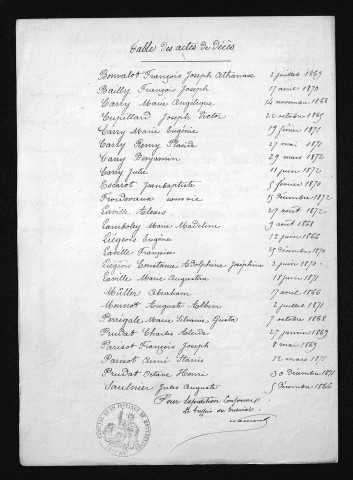 Table des actes de décès
Bonvalot François Joseph Athanase 2 juillet 1869
Bailly François Joseph 17 avril 1870
Carry Marie Angélique 14 novembre 1868
Cupillard Joseph Victor 22 octobre 1865
Carry Marie Eugénie 19 février 1871
Carry Remy Placide 27 mai 1871
Carry Benjamin 29 mars 1872
Carry Julie 11 juin 1872
Escarot Jean baptiste 5 février 1870
Froidevaux sans vie 5 décembre 1872
Laville Alexis 27 août 1872
Lamboley Marie Madeline 9 août 1868
Liégeois Eugène 12 juin 1866
Laville Françoise 25 décembre 1870
Liégeois Constance Adolphine Joséphine 2 juin 1871
Laville Marie Augustine 18 juin 1871
Müller Abraham 17 avril 1866
Monnot Auguste Albin 2 juillet 1871
Perrigale Marie Silvanie Gusta 7 octobre 1868
Prudat Charles Alcide 27 janvier 1869
Parisot François Joseph 8 mai 1869
Parisot Aimé Stanis 12 mars 1871
Prudat Octave Henri 30 décembre 1871
Saulnier Jules Auguste 5 décembre 1866
Pour Expédition Conforme
Le Greffier du Tribunal